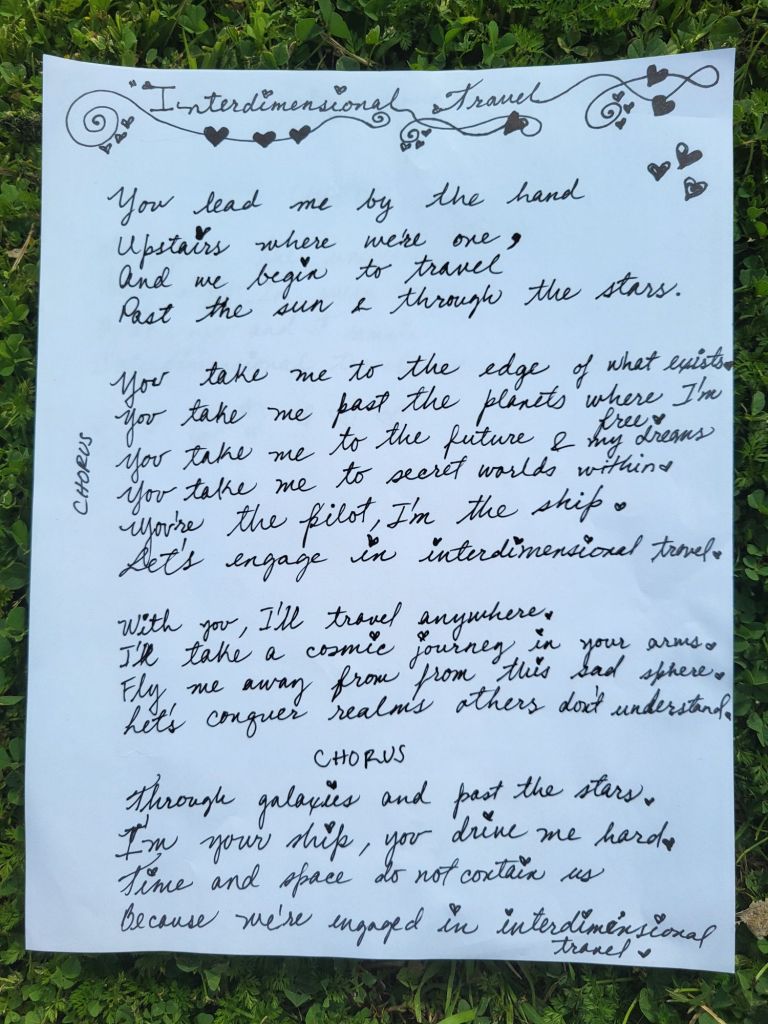 "Interdimensional Travel
You lead me by the hand
Upstairs where we're one,
And we begin to travel
Past the sun & through the stars.
CHORUS
You take me to the edge of what exists.
You take me past the planets where I'm
free.
You take me to the future & my dreams
You take me to secret worlds within
You're the pilot, I'm the ship.
Let's engage in interdimensional travel.
With you, I'll travel anywhere.
I'll take a cosmic journey in your arms.
Fly me away from from this sad sphere.
Let's conquer realms others don't understand.
CHORUS
Through galaxies and past the stars.
I'm your ship, you drive me hard.
Time and space do not contain us
Because we're engaged in interdimensional
travel.